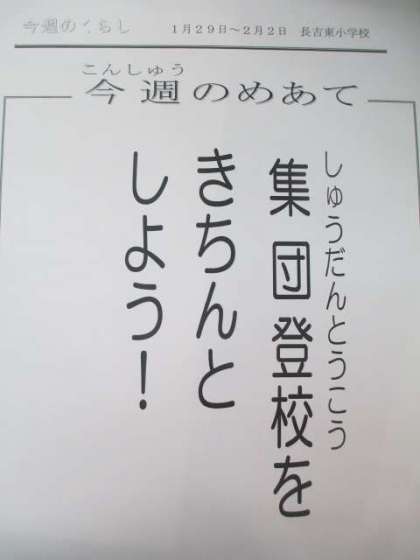 今週のくらし 1月29日～2月2日 長吉東小学校
こんしゅう
今週のめあて
しゅうだんとうこう
集団登校を
きちんと
しよう！